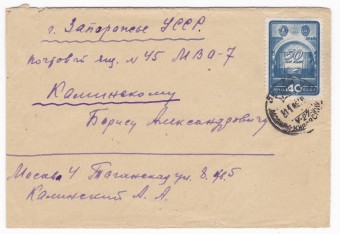 г. Запорожье УССР.
почтовой ящ. N 45 МВА-7
Калинскому
Борису Александровичу
40
Москва 4 Таганская ул.
Калинский А. А